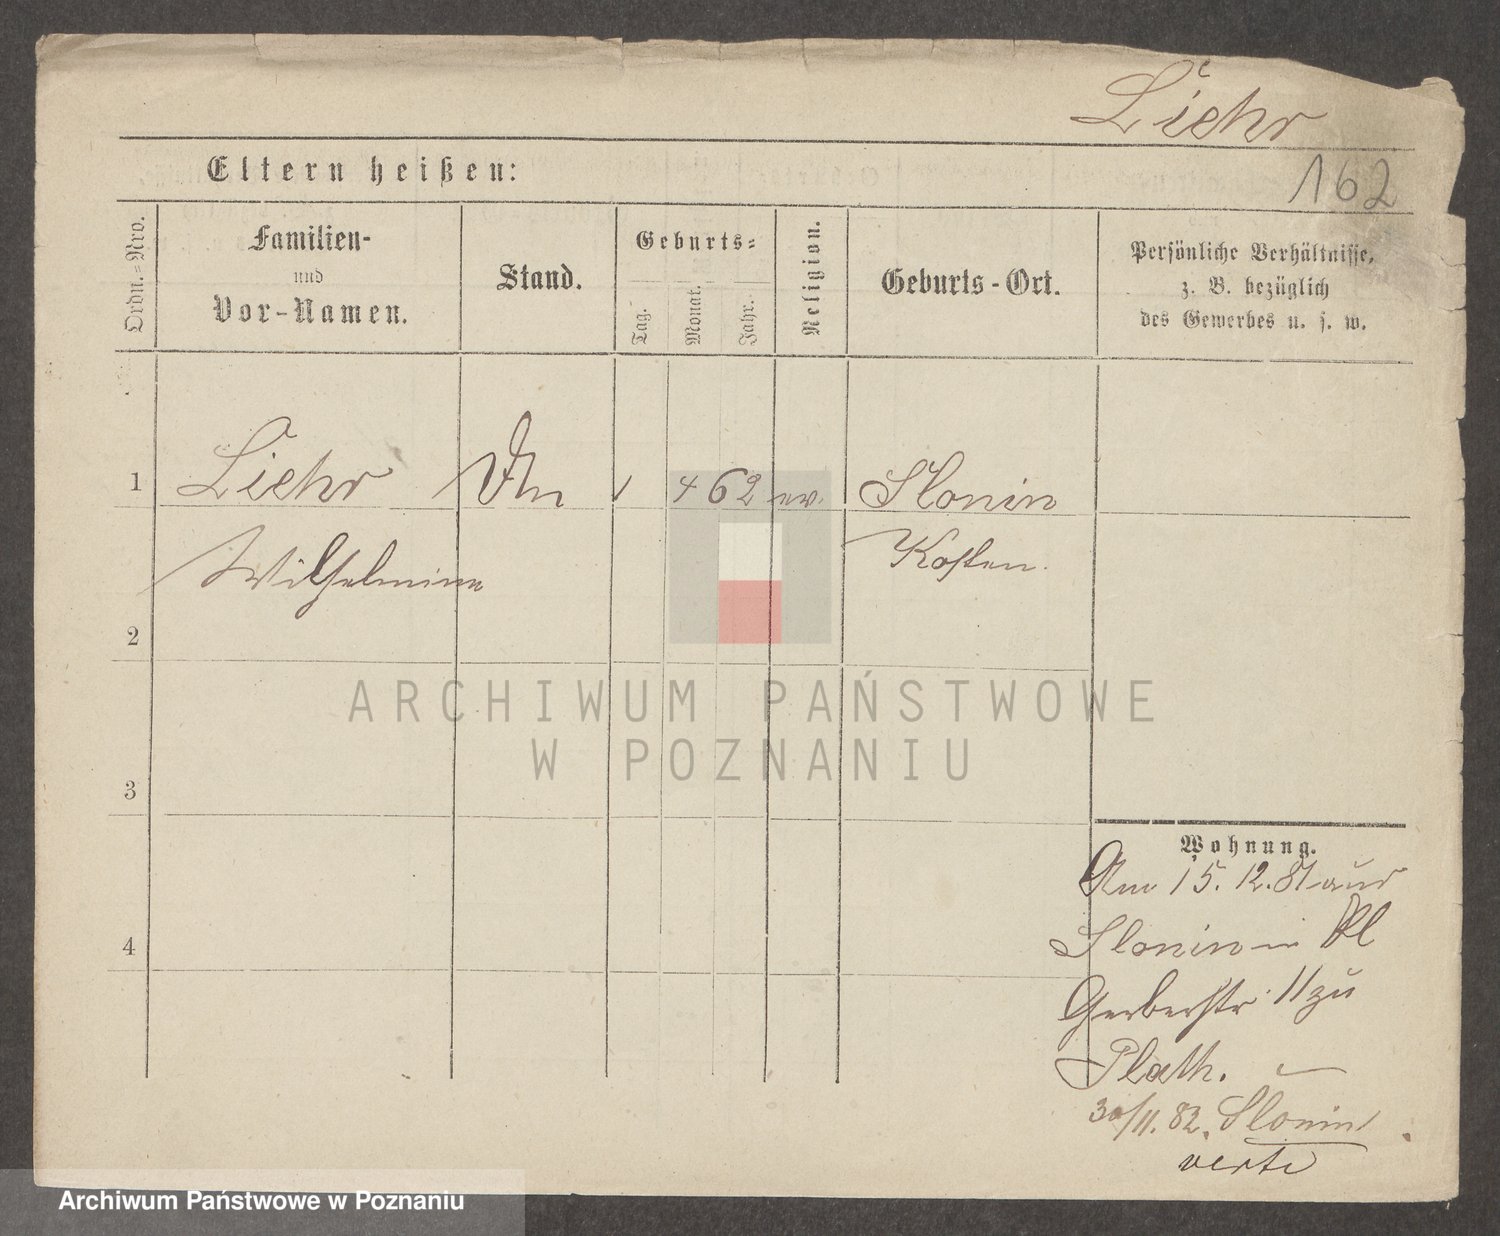 Liehr
Eltern heißen:
162
Ordn.=Nro.
Familien-
und
Vor-Namen.
Stand.
Geburts=
Tag.
Monat.
Jahr.
Religion.
Geburts-Ort.
Persönliche Verhältnisse,
z. B. bezüglich
des Gewerbes u. s. w.
1
Liehr
1 4 62 ev.
Slonin
Wilhelmine
Kosten.
2
ARCHIWUM PAŃSTWOWE
W POZNANIU
3
Wohnung.
Am 15. 12. 81 aus
Slonin in
4
Gerberstr 11 zu
Plath.
30/11. 82. Slonin
verte
Archiwum Państwowe w Poznaniu